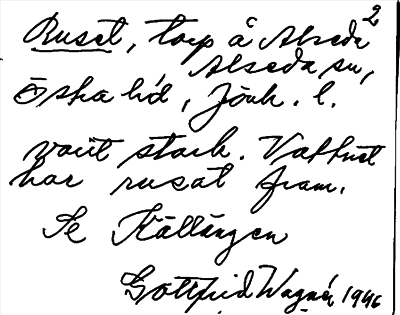 2
Ruset, torp å Alseda
Alseda sn,
Östra hd, Jönk. l.
varit stark. Vattnet
har rusat fram.
Se Källängen
Gottfrid Wagnér 1946